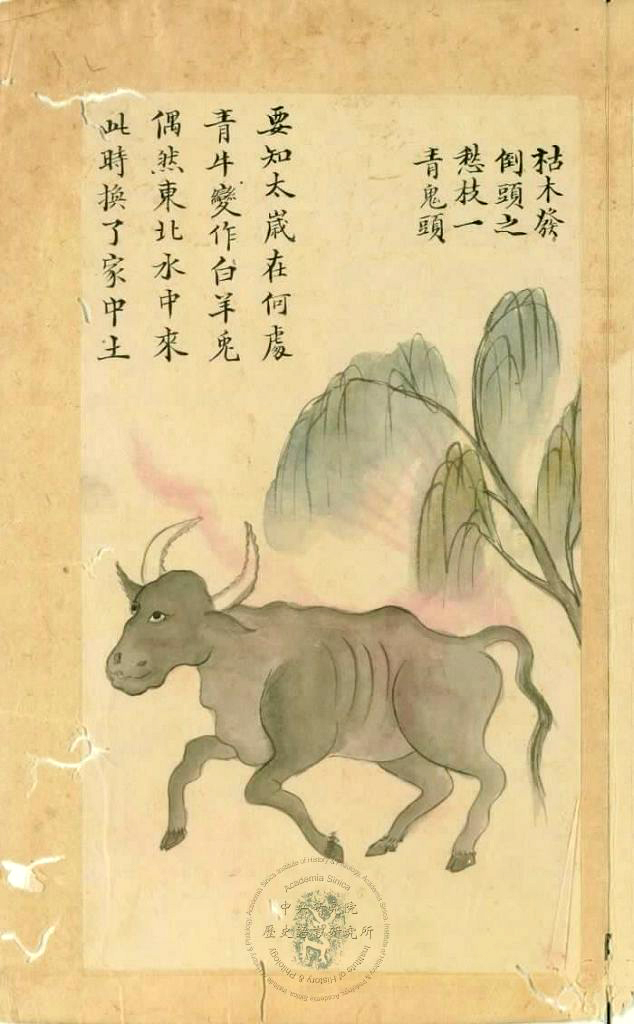 枯木發
倒頭之
愁枝一
青鬼頭
要知太嵗在何處
青牛變作白羊兎
偶然東北水中來
此時換了家中主
Academia Sinica
中央研究院
歷史語言研究所
Institute of History & Philology